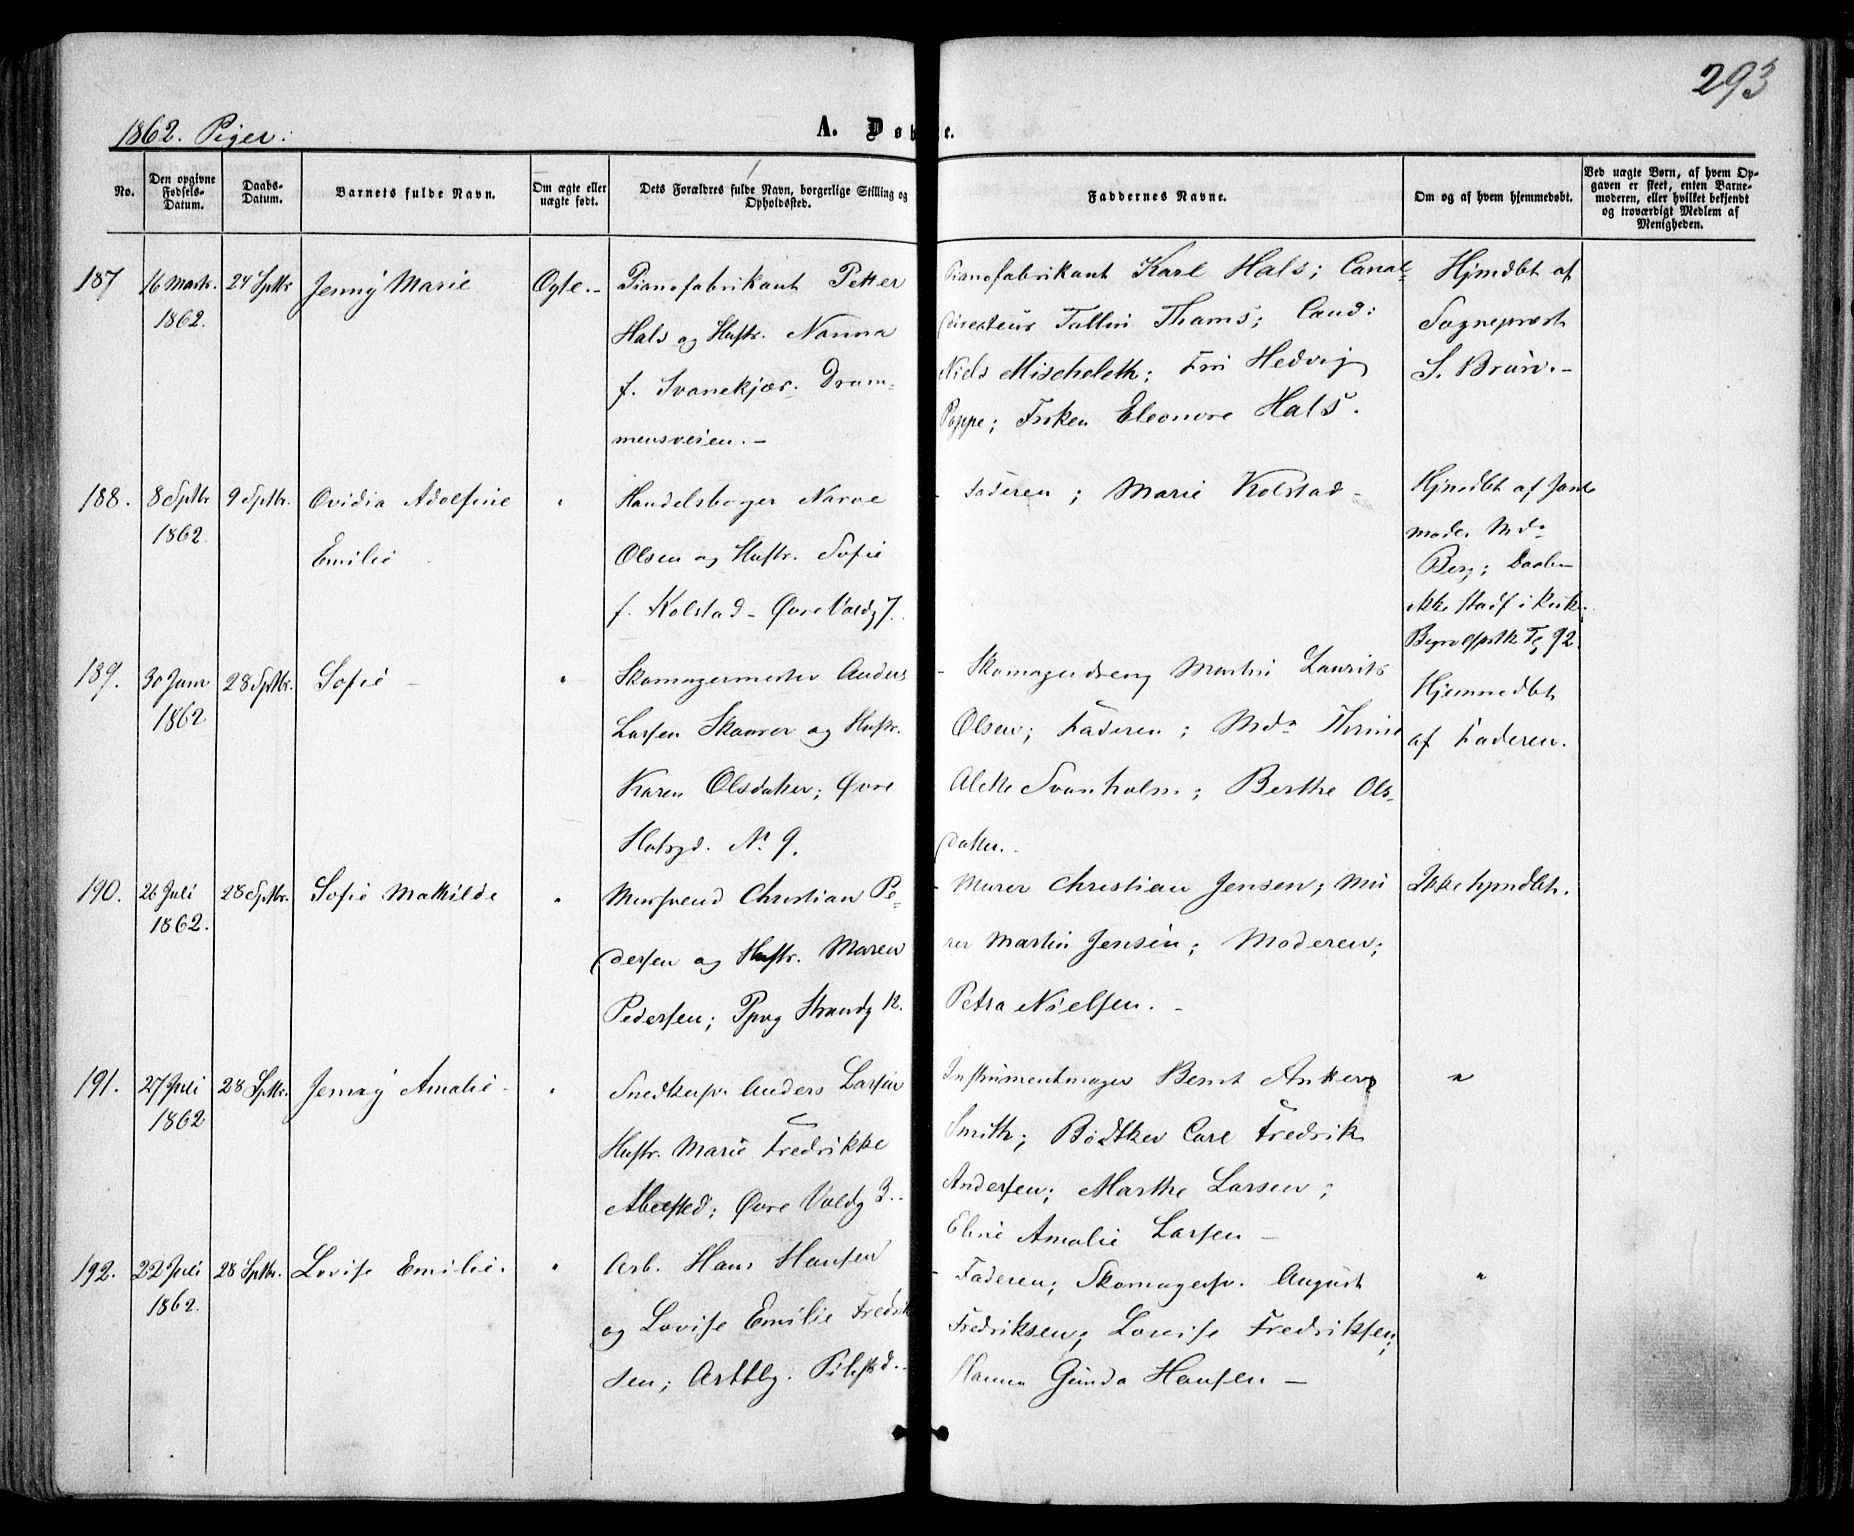 293
1862. Piger.
A. Døbte.
No.
Den opgivne Fødsels-Datum.
Daabs-Datum.
Barnets fulde Navn.
Om ægte eller uægte født.
Dets Forældres fulde Navn, borgerlige Stilling og Opholdssted.
Faddernes Navne.
Om og af hvem hjemmedøbt.
Ved uægte Børn, af hvem Opgaven er skeet, enten Barnemoderen, eller hvilket bekjendt og troværdigt Medlem af Menigheden.
187
16 Marts 1862.
24 Sptbr
Jenny Marie
Ogte.-
Pianofabrikant Petter
Hals og Hustr. Nanna
f. Svanekjær. Dram-
mensveien.-
Pianofabrikant Karl Hals; Canal-
directeur Thams; Cand:
Niels Mischeleth; Frk Hedvig
Poppe; Frøken Eleonore Hals.
Hjmdbt af
Sognepræst
S. Brun.-
188.
8 Sptbr 1862
9 Sptbr.
Ovidia Adolfine
Emilie
"
Handelsborger Narve
Olsen og Hustr. Sofie
f. Kolstad - Øvre Voldg 7.
- Faderen; Marie Kolstad -
Hjmdbt af Jord-
mode. Mda
Berg; Daaben
ikke stadf i Kirk.
189.
30 Janr 1862
28 Sptbr.
Sofie -
"
Skomagermester Anders
Larsen Skaarer og Hustr.
Karen Olsdatter; Øvre
Slotsgd. No 9.
- Skomagerdreng Martin Laurits
Olsen; Faderen; Mda Thrine
Alette Svanholm; Berthe Ols-
datter.-
Hjemmedbt
af Faderen.
190.
26 Juli 1862.
28 Sptbr.
Sofie Mathilde
"
Mursvend Christian Pe-
dersen og Hustr. Maren
Pedersen; Ppvg Strandg 12.
- Murer Christian Jensen; Mu
rer Martin Jensen; Moderen;
Petra Nielsen. -
Ikke hjmdbt.
191.
27 Juli 1862
28 Sptbr.
Jenny Amalie -
"
Snedkersv. Anders Larsen
Hustr. Marie Fredrikke
Abelsted; Øvre Voldg 3.-
Instrumentmager Bernt Anker
Smith; Bødtker Carl Fredrik
Andersen; Marthe Larsen;
Eline Amalie Larsen -
"
192.
22 Juli 1862.
28 Sptbr.
Lovise Emilie.
"
Arb. Hans Hansen
og Lovise Emilie Fredrik
sen; Pilestrd.-
- Faderen; Skomagersv. August
Fredriksen; Lovise Fredriksen;
Hanna Gunda Hansen -
"